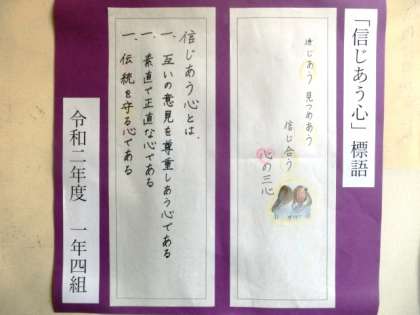 「信じあう心」標語
通じあう 見つめあう
信じ合う
心の三心
信じあう心とは、
一、互いの意見を尊重しあう心である
一、素直で正直な心である
一、伝統を守る心である
令和二年度 一年四組